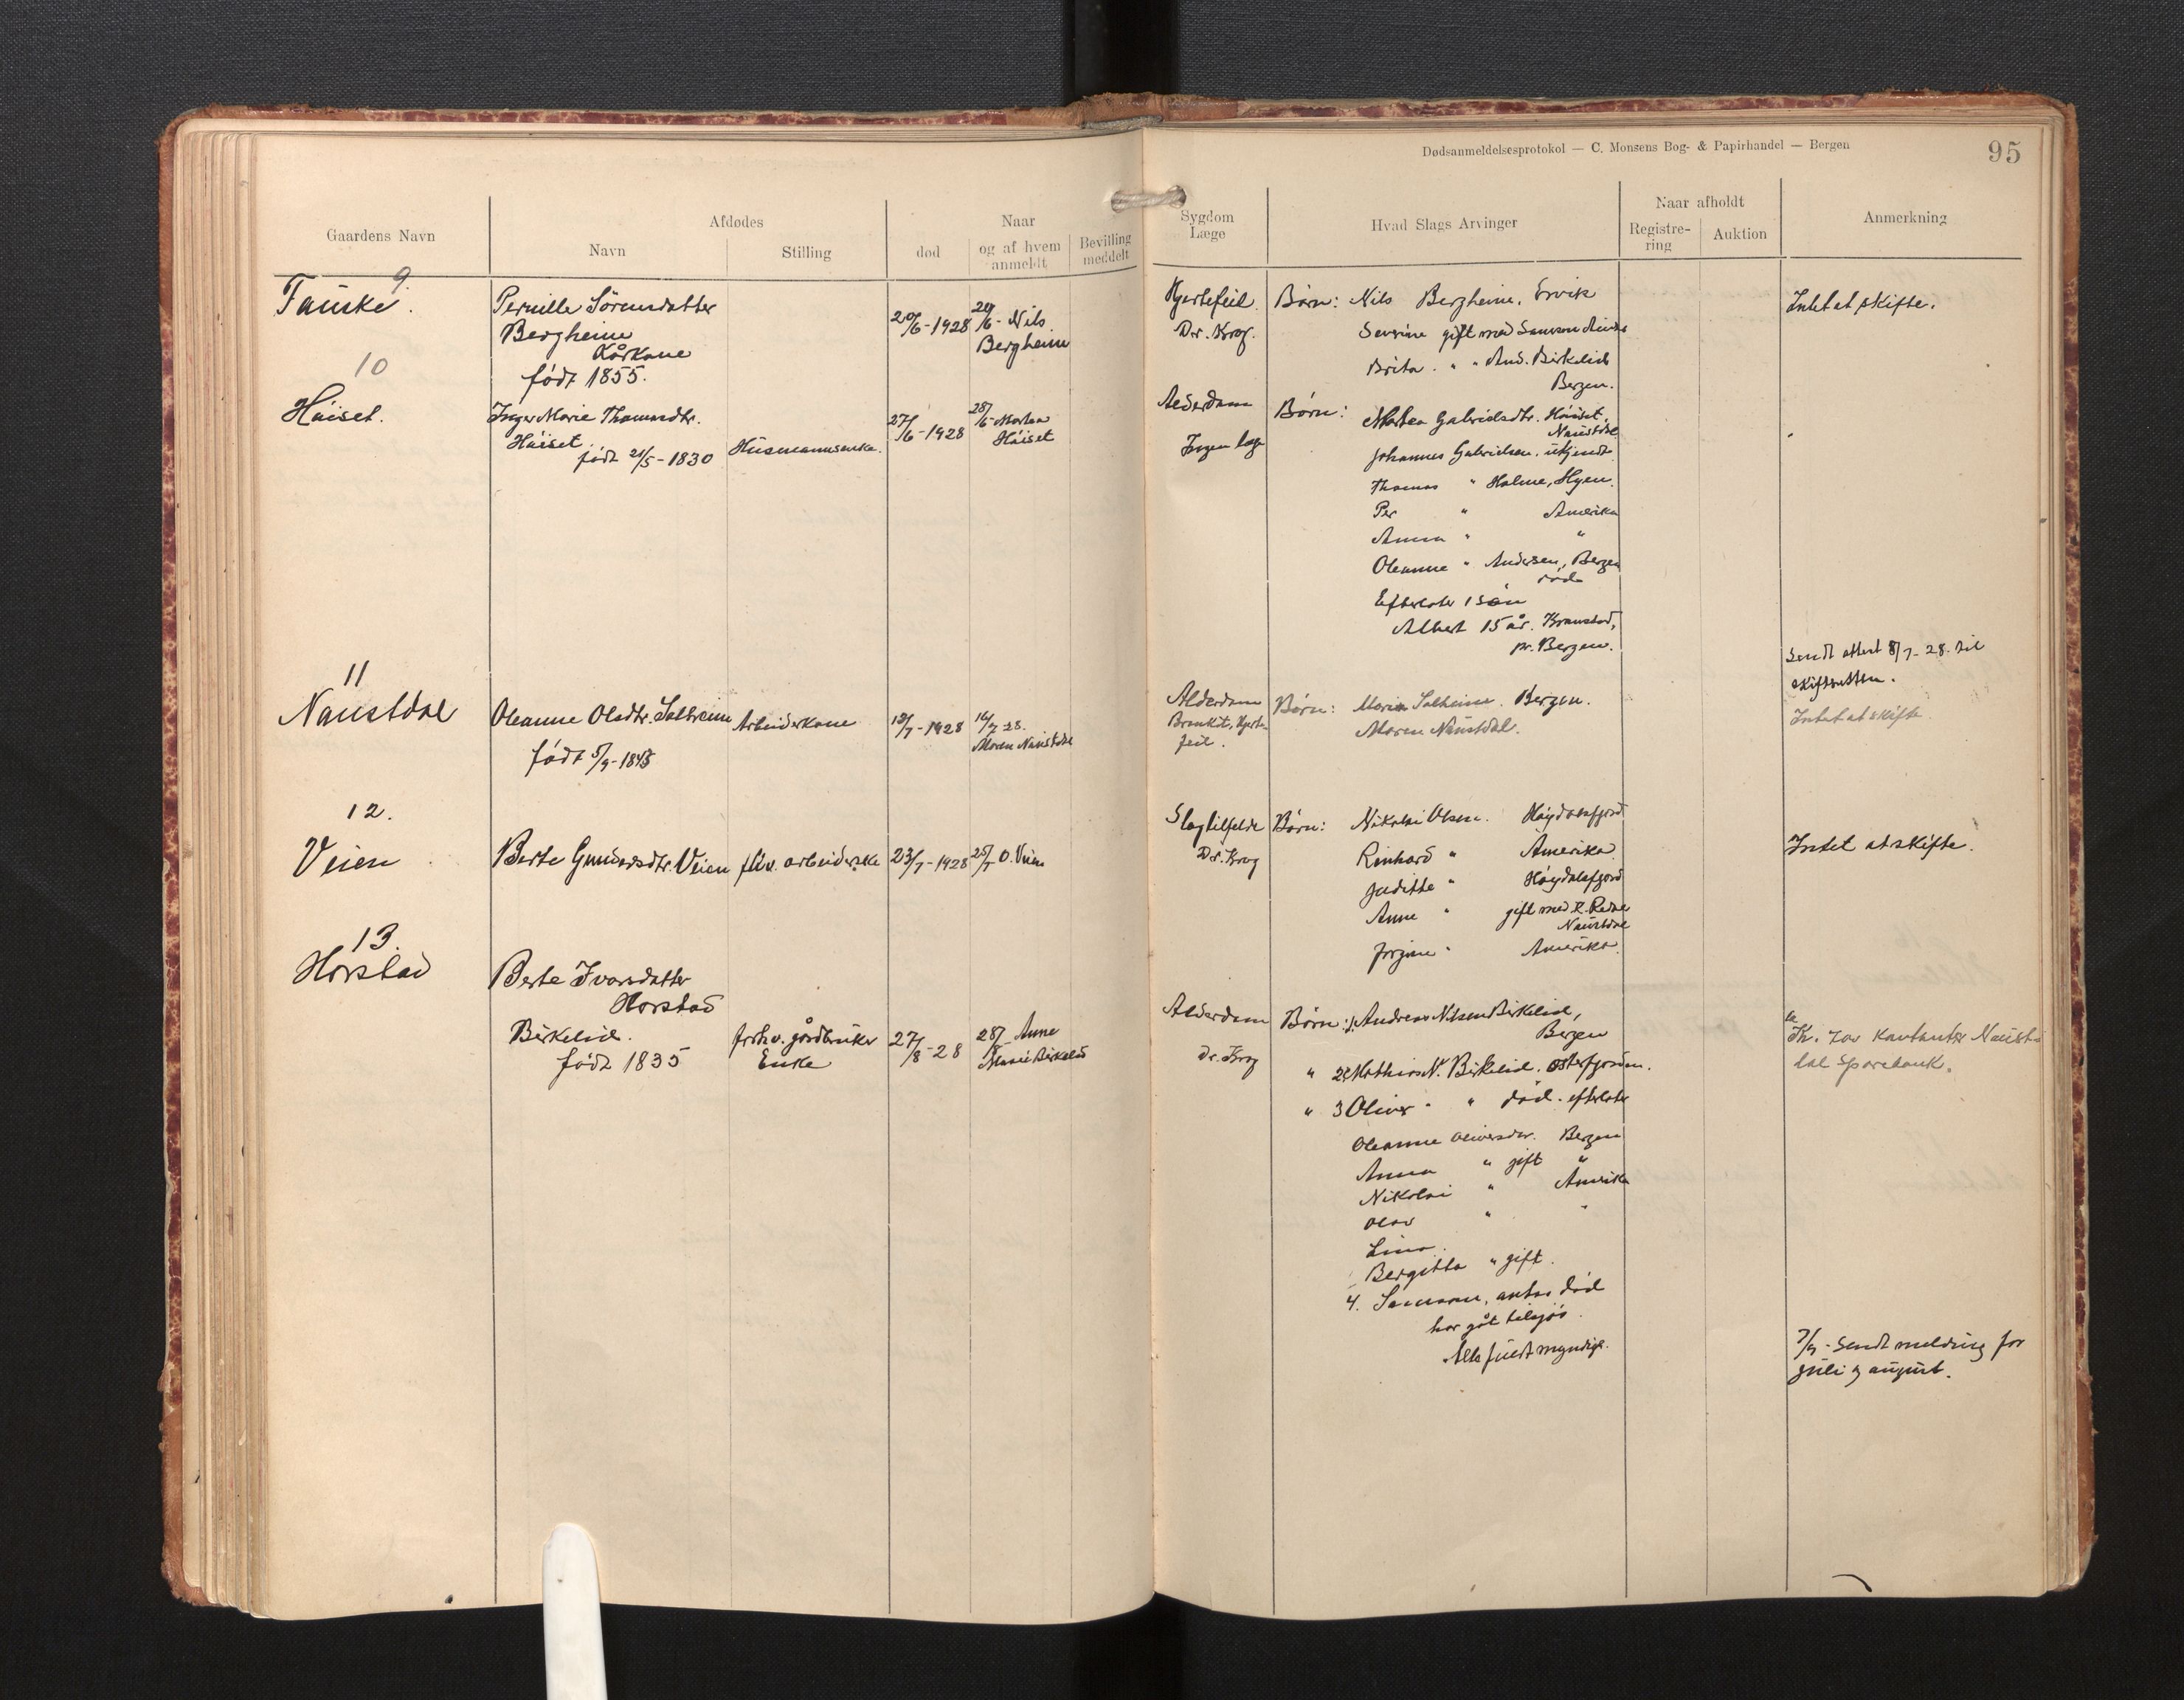 Dødsanmeldelsesprotokol — C. Monsens Bog- & Papirhandel — Bergen
95
Gaardens Navn
Afdødes
Navn
Stilling
Naar
død
og af hvem
anmeldt
Bevilling
meddelt
Sygdom
Læge
Hvad Slags Arvinger
Naar afholdt
Registre-
ring
Auktion
Anmerkning
9.
Fauske.
Pernille Sörensdatter
Bergheim
Kårkone
född 1855.
20/6-1928
Nils
Bergheim
Hjertefeil.
Dr. Krog.
Børn: Nils Bergheim, Ervik
Severine gift med Samson
Brita. " " And. Birkelid
Bergen.
Intet at skifte.
10
Håiset.
Inger Marie Thomasdtr.
Håiset.
född 21/5-1830
Husmannsenke.
27/6-1928
28/6 Marten
Håiset
Alderdom
Ingen læge
Børn: Marten Gabrielsdtr. Håiset,
Naustdal
Johannes Gabrielsen, ukjendt
Thomas " Holme, Hyen.
Per " Amerika
Anna " "
Oleanne " Andersen, Bergen
död
Efterlater 1 sön
Albert 15 år.
pr. Bergen.
Sendt attest 8/7-28 til
skifteretten.
11
Naustdal
Oleanne Olsdtr. Solheim
född 5/9-1843
Arbeiderkone
12/7-1928
16/7 28.
Maren Naustdal
Alderdom
Bronkit, Hjerte-
feil.
Børn: Maria Solheim. Bergen.
Maren Naustdal.
Intet at skifte
12.
Veien
Berte Gunnarsdtr. Veien
arbeiderske
23/7-1928
25/7 O. Veien
Slagtilfelde
Dr. Krog
Børn: Nikolai Olsen. Høydalsfjord
Reinhard " Amerika
Juditte " Høydalsfjord
Anne " gift med R. Redal
Naustdal
Jørgine " Amerika
Intet at skifte.
13.
Horstad
Berte Ivarsdatter
Horstad
Birkelid.
född 1835
forhv. gårdbruker
Enke
27/8-28
28/8 Anne
Marie Birkelid
Alderdom
Dr. Krog
Børn: 1. Andreas Nilsen Birkelid,
Bergen
" 2 Mathias N. Birkelid. Osterfjorden.
" 3 Oliver " " död. efterlater
Oleanne Oliversdtr. Bergen
Anna " gift "
Nikolai " Amerika
Olav " "
Lina
Bergitta " gift.
4. Samson, antas död
har gåt tilsjøs.
Alle fuldt myndige.
Kr. 700 Kontanter Naust-
dal Sparebank.
7/9-Sendt melding for
juli og august.